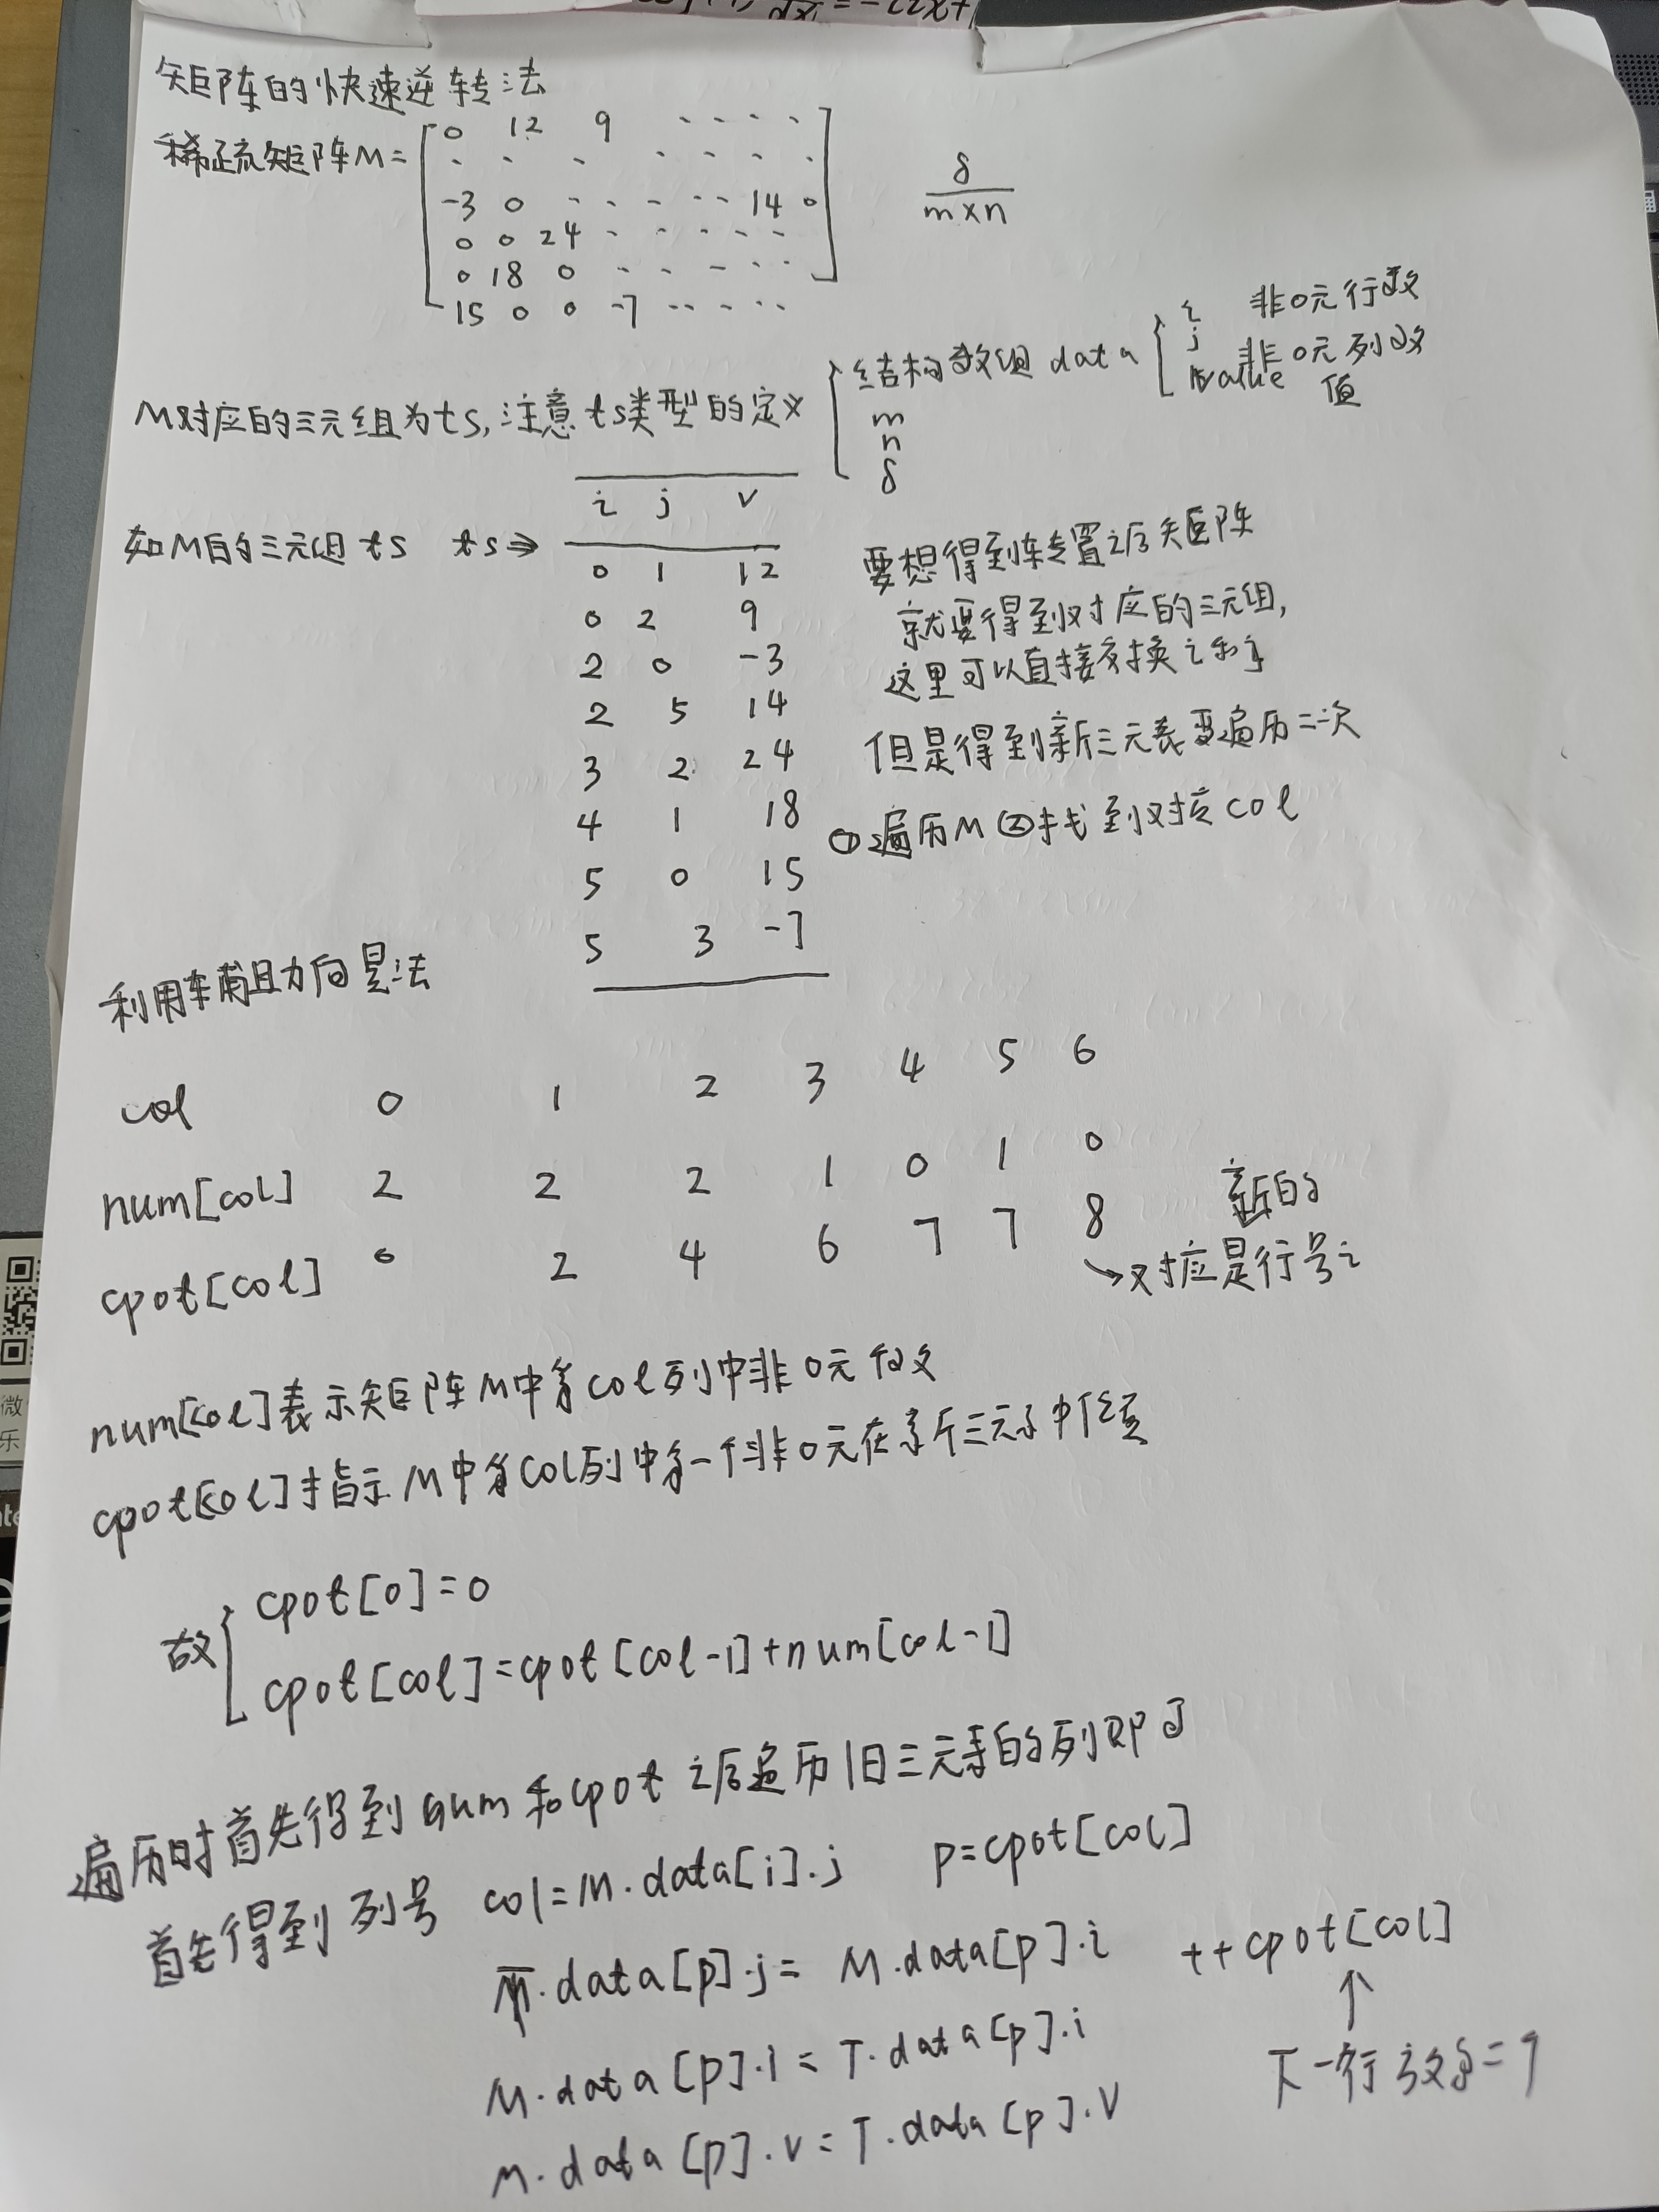 矩阵的快速逆转法
稀疏矩阵M=
0 12 9 ....
. . . . . . . .
-3 0 . . . . . 14 0
0 0 24 . . . . .
0 18 0 . . . . .
15 0 0 -7 . . . . .
δ
m×n
M对应的三元组为ts,注意ts类型的定义
结构数组 data
m
n
δ
i 非0元行数
j 非0元列数
value 值
如M的三元组ts ts⇒
i j v
0 1 12
0 2 9
2 0 -3
2 5 14
3 2 24
4 1 18
5 0 15
5 3 -7
要想得到转置之后矩阵
就要得到对应的三元组,
这里可以直接交换i和j
但是得到新三元表要遍历二次
①遍历M②找到对应col
利用辅助向量法
col 0 1 2 3 4 5 6
num[col] 2 2 2 1 0 1 0
cpot[col] 0 2 4 6 7 7 8
新的
→对应是行号i
num[col]表示矩阵M中第col列中非0元个数
cpot[col]指示M中第col列中第一个非0元在新三元中位置
故
cpot[0]=0
cpot[col]=cpot[col-1]+num[col-1]
遍历时首先得到num和cpot之后遍历旧三元表的列即可
首先得到列号 col=M.data[i].j p=cpot[col]
.data[p].j= M.data[p].i ++cpot[col]
↑
M.data[p].i=T.data[p].i
下一行
M.data[p].v=T.data[p].v